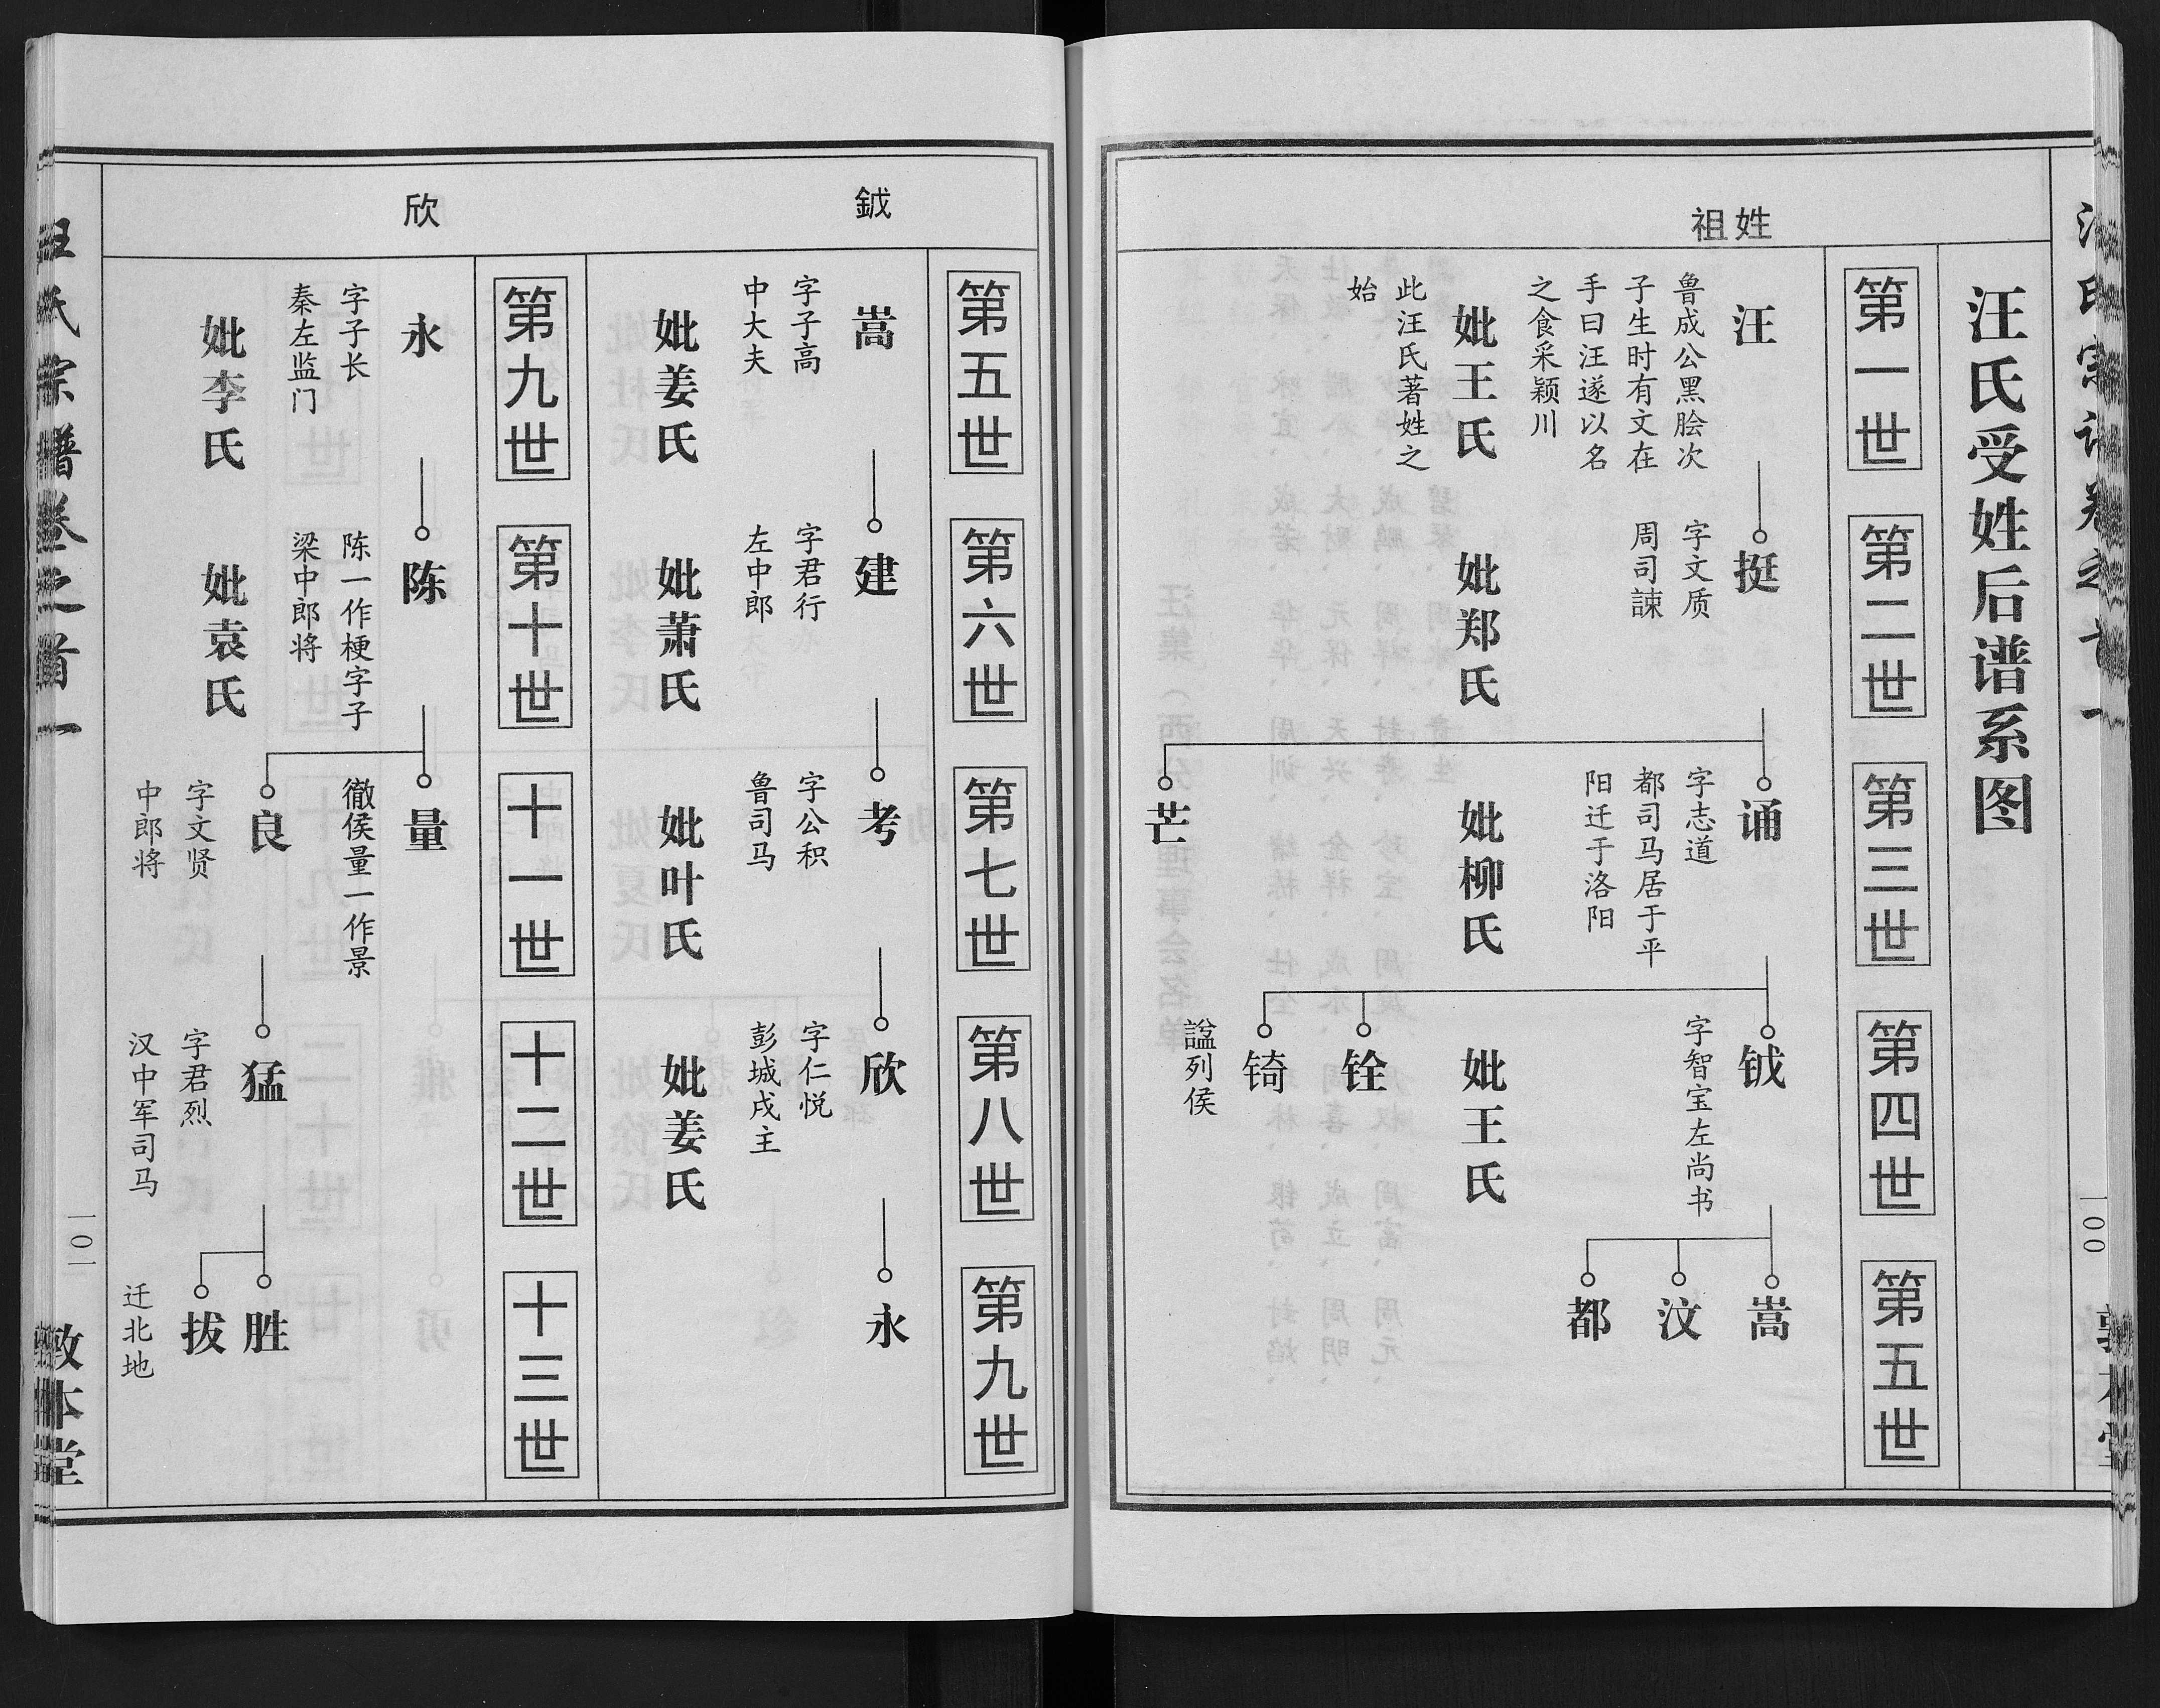 汪氏宗谱卷之首一
一〇〇
敦本堂
汪氏受姓后谱系图
姓祖
第一世
第二世
第三世
第四世
第五世
汪
鲁成公黑脍次
子生时有文在
手曰汪遂以名
之食采颖川
妣王氏
此汪氏著姓之
始
挺
字文质
周司諫
妣郑氏
诵
字志道
都司马居于平
阳迁于洛阳
妣柳氏
芒
钺
字智宝左尚书
妣王氏
铨
锜
諡列侯
嵩
汶
都
鉞
第五世
第六世
第七世
第八世
第九世
嵩
字子高
中大夫
妣姜氏
建
字君行
左中郎
妣萧氏
考
字公积
鲁司马
妣叶氏
欣
字仁悦
彭城戍主
妣姜氏
永
欣
第九世
第十世
十一世
十二世
十三世
永
字子长
秦左监门
妣李氏
陈
陈一作梗字子
梁中郎将
妣袁氏
量
徹侯量一作景
良
字文贤
中郎将
猛
字君烈
汉中军司马
胜
拔
迁北地
汪氏宗谱卷之首一
一〇一
敦本堂